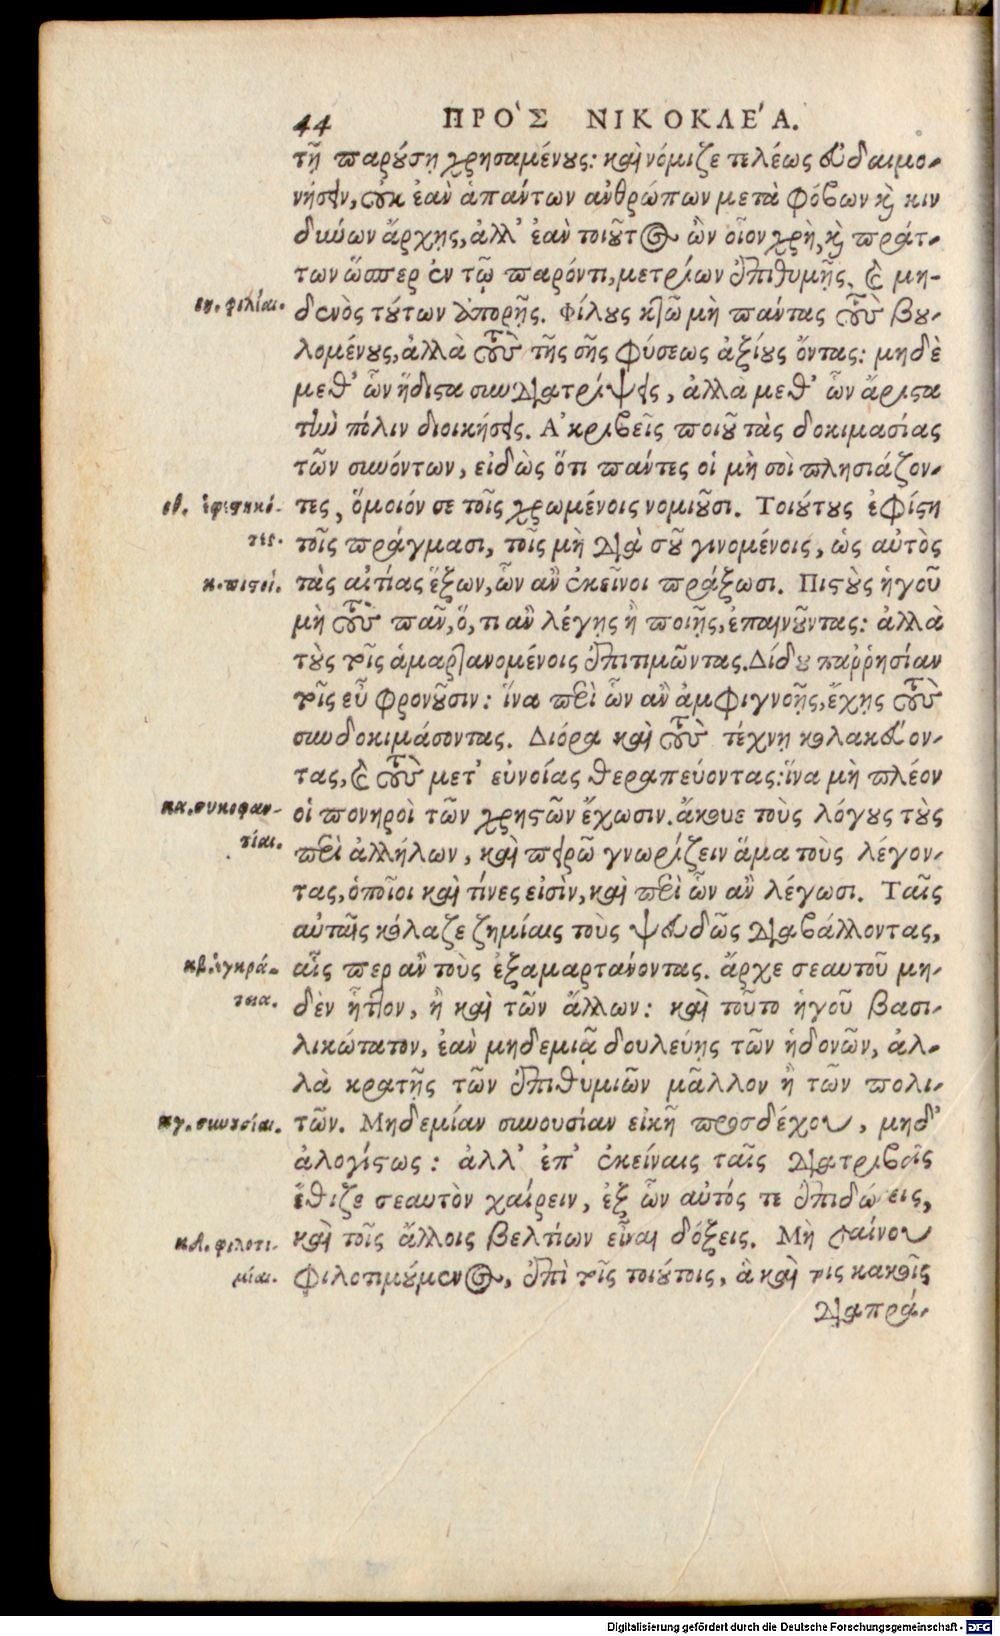 44 ΠΡΟ`Σ ΝΙΚΟΚΛΕ´Α.
τῇ παρούσῃ χρησαμένους: καὶ νόμιζε τελέως εὐδαιμο-
νήσειν, οὐκ ἐὰν ἁπάντων ἀνθρώπων μετὰ φόβων καὶ κιν
δυνων ἄρχῃς, ἀλλ' ἐὰν τοιοῦτος ὢν οἷον χρὴ, καὶ πράτ-
των ὥσπερ ἐν τῷ παρόντι, μετρίων ἐπιθυμῇς, καὶ μη-
ιη. φιλίαι.
δενὸς τούτων ἀπορῇς. Φίλους κτῶ μὴ πάντας τοὺς βου-
λομένους, ἀλλὰ τοὺς τῆς σῆς φύσεως ἀξίους ὄντας: μηδὲ
μεθ' ὧν ἥδιστα συνδιατρίψεις, ἀλλὰ μεθ' ὧν ἄριστα
τὴν πόλιν διοικήσεις. Ἀκριβεῖς ποιοῦ τὰς δοκιμασίας
τῶν συνόντων, εἰδὼς ὅτι πάντες οἱ μὴ σοὶ πλησιάζον-
ιθ. ἐφεστηκό-
τες, ὅμοιόν σε τοῖς χρωμένοις νομιοῦσι. Τοιούτους ἐφίστη
τες.
τοῖς πράγμασι, τοῖς μὴ διὰ σοῦ γινομένοις, ὡς αὐτὸς
κ. πιστοί.
τὰς αἰτίας ἕξων, ὧν ἂν ἐκεῖνοι πράξωσι. Πιστοὺς ἡγοῦ
μὴ τοὺς πᾶν, ὅ, τι ἂν λέγῃς ἢ ποιῇς, ἐπαινοῦντας: ἀλλὰ
τοὺς τοῖς ἁμαρτανομένοις ἐπιτιμῶντας. Δίδου παῤῥησίαν
τοῖς εὖ φρονοῦσιν: ἵνα περὶ ὧν ἂν ἀμφιγνοῇς, ἔχῃς τοὺς
συνδοκιμάσοντας. Διόρα καὶ τοὺς τέχνῃ κολακεύον-
τας, καὶ τοὺς μετ' εὐνοίας θεραπεύοντας: ἵνα μὴ πλέον
κα. συκοφαν-
οἱ πονηροὶ τῶν χρηστῶν ἔχωσιν. ἄκουε τοὺς λόγους τοὺς
τίαι.
περὶ ἀλλήλων, καὶ πειρῶ γνωρίζειν ἅμα τοὺς λέγον-
τας, ὁποῖοι καὶ τίνες εἰσὶν, καὶ περὶ ὧν ἂν λέγωσι. Ταῖς
αὐταῖς κόλαζε ζημίαις τοὺς ψευδῶς διαβάλλοντας,
κβ. ἐγκρά-
αἷς περ ἂν τοὺς ἐξαμαρτάνοντας. ἄρχε σεαυτοῦ μη-
τεια.
δὲν ἧττον, ἢ καὶ τῶν ἄλλων: καὶ τοῦτο ἡγοῦ βασι-
λικώτατον, ἐὰν μηδεμιᾷ δουλεύῃς τῶν ἡδονῶν, ἀλ-
λὰ κρατῇς τῶν ἐπιθυμιῶν μᾶλλον ἢ τῶν πολι-
κγ. συνουσίαι.
τῶν. Μηδεμίαν συνουσίαν εἰκῆ προσδέχου, μηδ'
ἀλογίστως: ἀλλ' ἐπ' ἐκείναις ταῖς διατριβαῖς
ἔθιζε σεαυτὸν χαίρειν, ἐξ ὧν αὐτός τε ἐπιδώσεις,
κδ. φιλοτι-
καὶ τοῖς ἄλλοις βελτίων εἶναι δόξεις. Μὴ φαίνου
μίαι.
φιλοτιμούμενος, ἐπὶ τοῖς τοιούτοις, ἃ καὶ τοῖς κακοῖς
διαπρά-
Digitalisierung gefördert durch die Deutsche Forschungsgemeinschaft - DFG